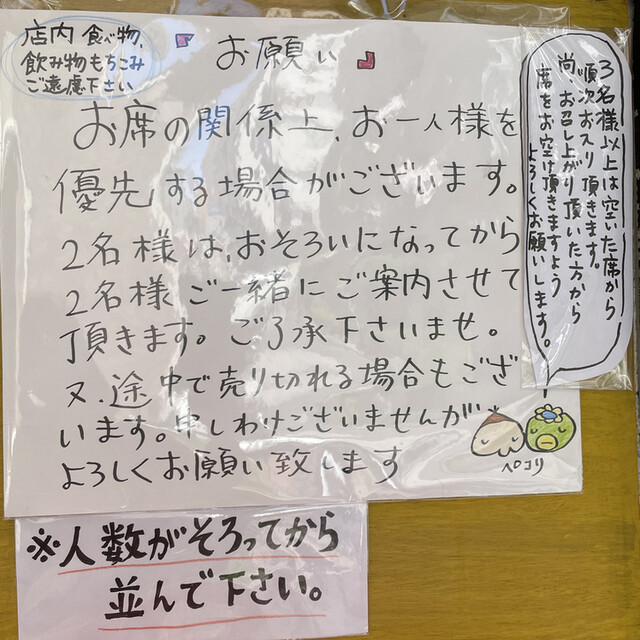 店内 食べ物、
飲み物もちこみ
ご遠慮下さい
『 お願い 』
お席の関係上、お一人様を
優先する場合がございます。
2名様は、おそろいになってから
2名様ご一緒にご案内させて
頂きます。ご了承下さいませ。
又、途中で売り切れる場合もござ
います。申しわけございませんが
よろしくお願い致します
ペコリ
3名様以上は空いた席から
順次お入り頂きます。
尚、お召し上がり頂いた方から
席をお空け頂きますよう
よろしくお願いします。
※人数がそろってから
並んで下さい。